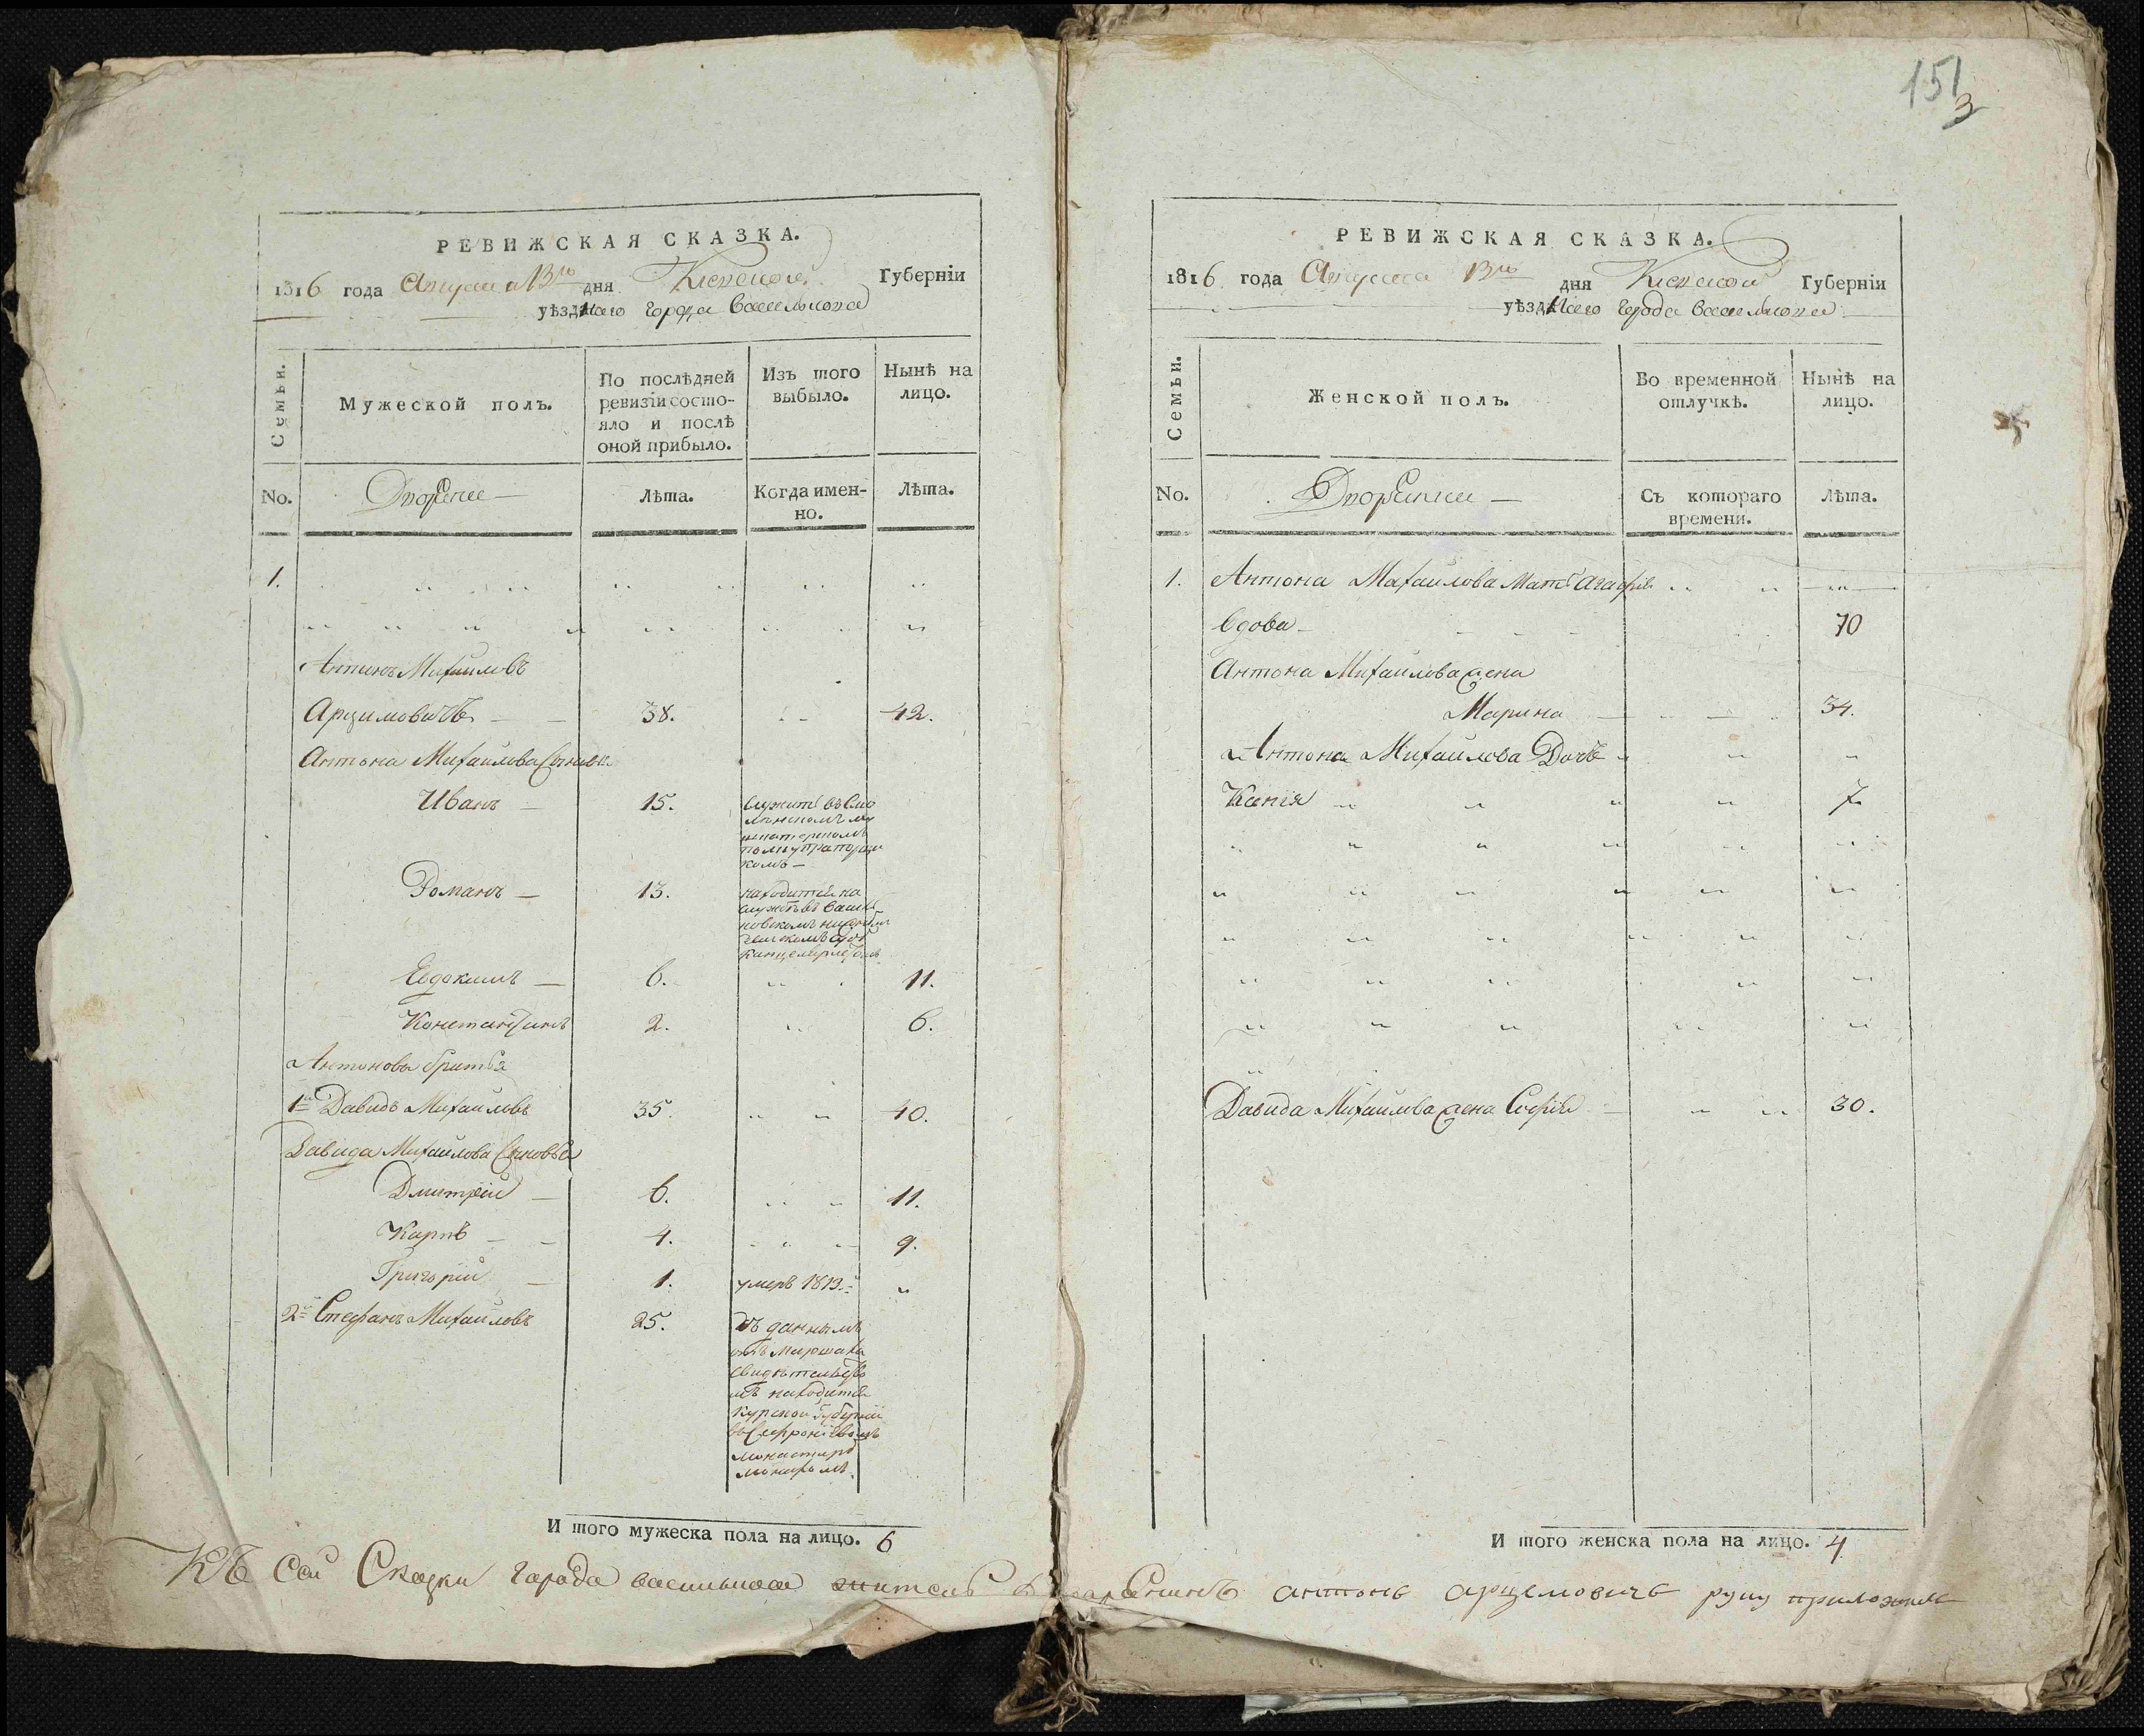 151
3
РЕВИЖСКАЯ СКАЗКА.
1816 года Августа 13го дня Кіевской Губерніи
уѣзднаго города Василькова
Семьи.
Мужеской полъ.
По послѣдней
ревизіи состо-
яло и послѣ
оной прибыло.
Изъ того
выбыло.
Нынѣ на
лицо.
No.
Дворяне —
Лѣта.
Когда имен-
но.
Лѣта.
1.
Антонъ Михайловъ
Арцимовичъ — — 38. 42.
Антона Михайлова Сыновья
Иванъ — 15. служитъ въ
комъ —
Романъ — 13. находится на
службѣ въ
Евдокимъ — 6. 11.
Константинъ 2. 6.
Антоновы братья
1й Давидъ Михайловъ 35. 40.
Давида Михайлова Сыновья
Дмитрій — 6. 11.
Карпъ — — 4. 9.
Григорій — 1. умеръ 1813.
2й Стефанъ Михайловъ 25. Съ даннымъ
отъ Маршала
свидѣтельство
мъ находится
Курской губерніи
монастырѣ
монахомъ.
И того мужеска пола на лицо. 6
РЕВИЖСКАЯ СКАЗКА.
1816 года Августа 13го дня Кіевской Губерніи
уѣзднаго города Василькова
Семьи.
Женской полъ.
Во временной
отлучкѣ.
Нынѣ на
лицо.
No.
Дворянки —
Съ котораго
времени.
Лѣта.
1. Антона Михайлова Мать Агафія
Вдова — 70
Антона Михайлова жена
Марина — 34.
Антона Михайлова Дочь
Ксенія 7
Давида Михайлова жена Софія — 30.
И того женска пола на лицо. 4
Къ сей Сказки города василькова житель дворенинъ антонъ арцемовичъ руку приложилъ